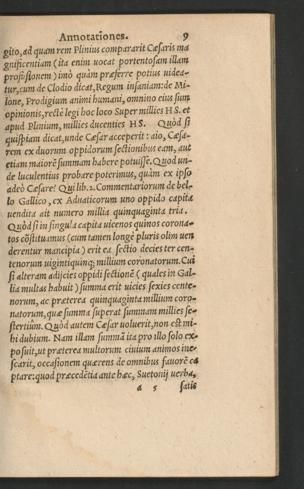 Annotationes. 9
gito, ad quam rem Plinius compararit Cæsaris ma
gnificentiam (ita enim uocat portentosam illam
profusionem) imò quàm præferre potius uidea-
tur, cum de Clodio dicat, Regum insaniam: de Mi-
lone, Prodigium animi humani, omnino eius sum
opinionis, rectè legi hoc loco Super millies HS. et
apud Plinium, millies ducenties HS. Quòd si
quispiam dicat, unde Cæsar acceperit: aio, Cæsa-
rem ex duorum oppidorum sectionibus eam, aut
etiam maiorē summam habere potuisse. Quod un-
de luculentius probare poterimus, quàm ex ipso
adeò Cæsare? Qui lib. 2. Commentariorum de bel-
lo Gallico, ex Aduaticorum uno oppido capita
uendita ait numero millia quinquaginta tria.
Quòd si in singula capita uicenos quinos corona-
tos cōstituamus (cum tamen longè pluris olim uen
derentur mancipia) erit ea sectio decies ter cen-
tenorum uigintiquinq; millium coronatorum. Cui
si alteram adijcies oppidi sectionē (quales in Gal-
lia multas habuit) summa erit uicies sexies cente-
norum, ac præterea quinquaginta millium coro-
natorum, quæ summa superat summam millies se-
stertiûm. Quòd autem Cæsar uoluerit, non est mi-
hi dubium. Nam illam summā ita pro illo solo ex-
posuit, ut præterea multorum ciuium animos ine-
scarit, occasionem quærens de omnibus fauorē ca
ptare: quod præcedētia ante hæc, Suetonij uerba,
a 5 satis